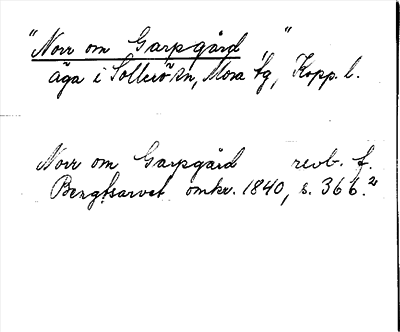 "Norr om Garpgård,"
äga i Sollerö sn, Mora tg, Kopp. l.
Norr om Garpgård revb. f.
Bengtsarvet omkr. 1840, s. 366.²